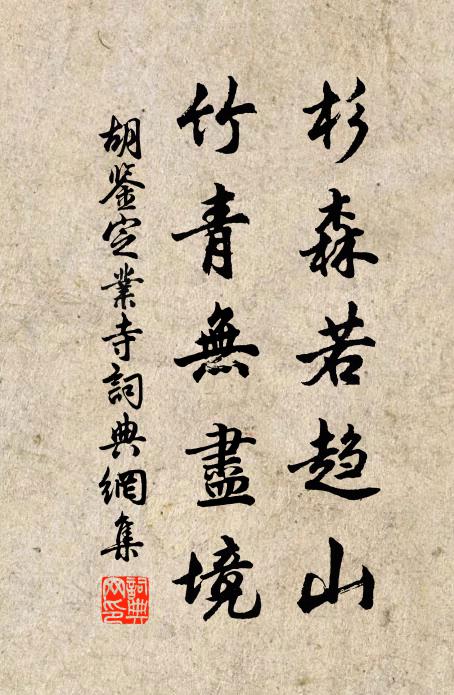 杉森若趋山
竹青無盡境
胡鉴定業寺詞典網集
詞典网印